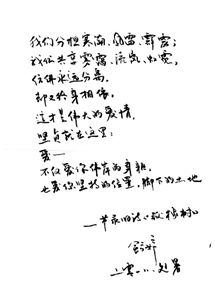 我们分担寒潮、风雷、霹雳；
我们共享雾霭、流岚、虹霓，
仿佛永远分离，
却又终身相依，
这才是伟大的爱情，
坚贞就在这里：
爱——
不仅爱你伟岸的身躯，
也爱你坚持的位置，脚下的土地
——节录旧诗《致橡树》
舒婷
二零一一、处暑